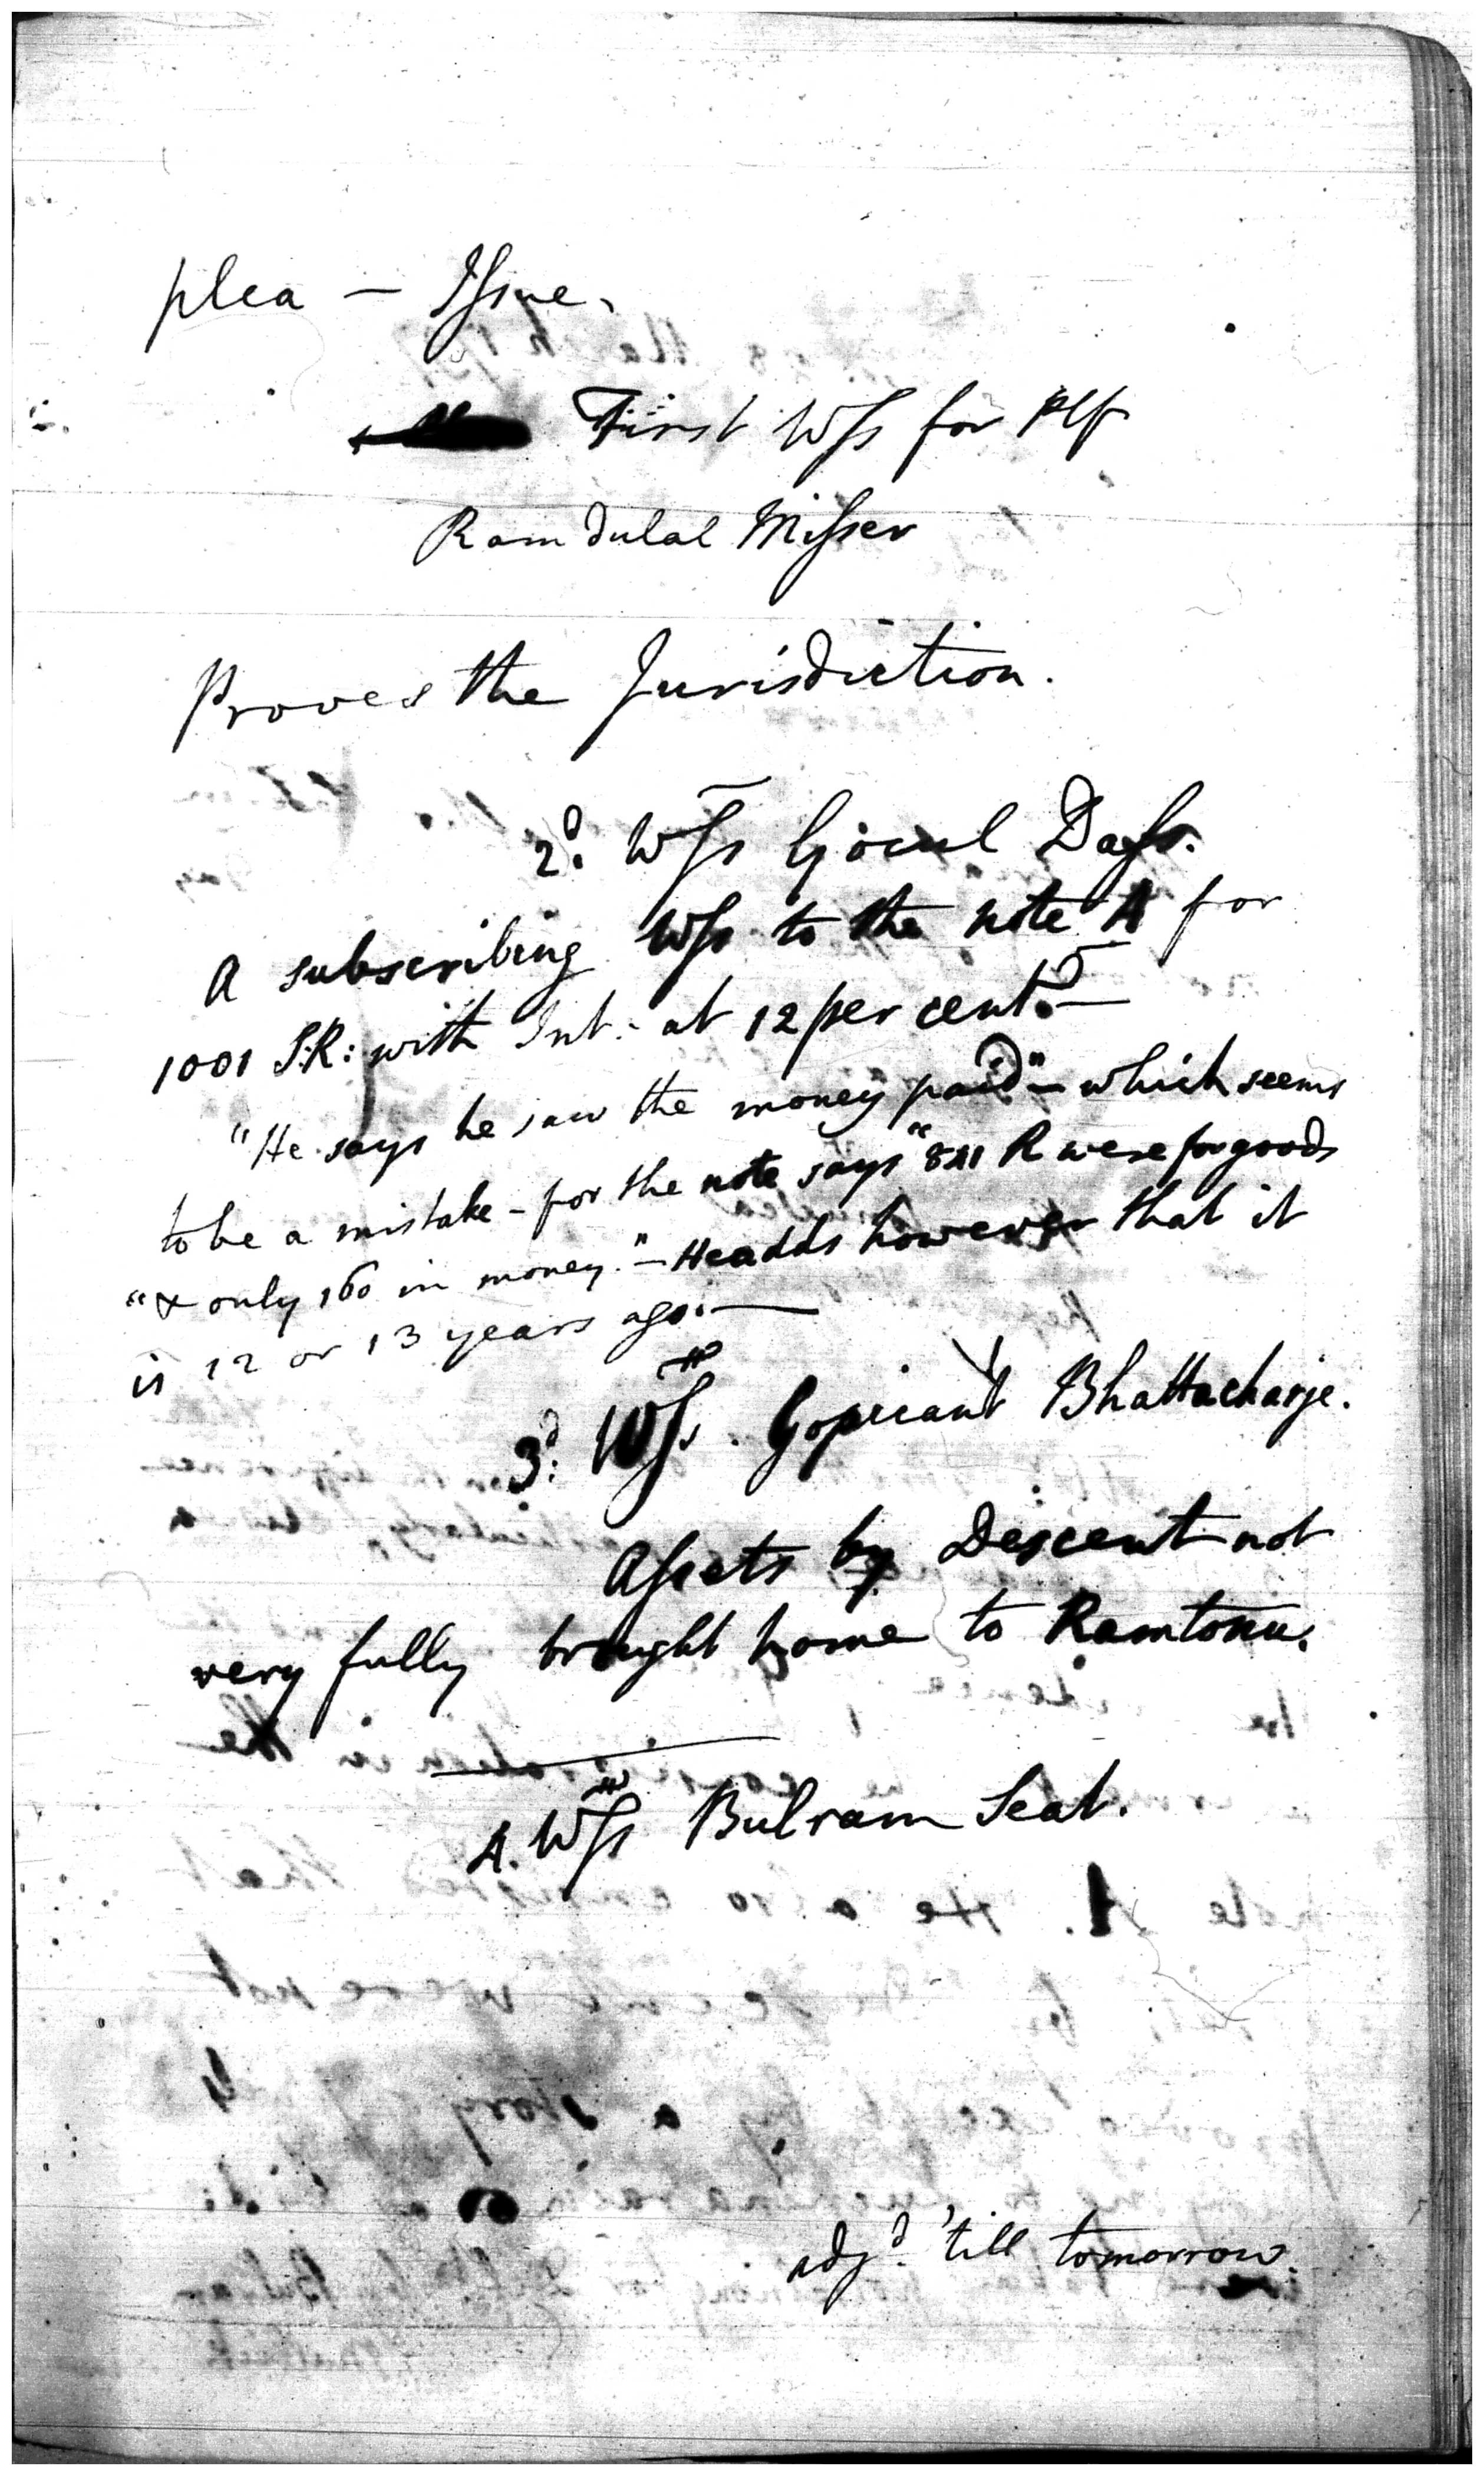 plea — Issue.
First Wss for Plf
Ramdulal Misser
Proves the Jurisdiction.
2d. Wss Gocul Dass.
A subscribing Wss to the note A for
1001 S.R: with Int: at 12 per cent.—
"He says he saw the money paid"— which seems
to be a mistake - for the note says "841 R were for goods
"& only 160 in money."— He adds however that it
is 12 or 13 years ago.—
3d: Wss. Gopicant Bhattacharje.
Assets by Descent not
very fully brought home to Ramtonu.
4. Wss Bulram Seat.
adjd. 'till tomorrow.